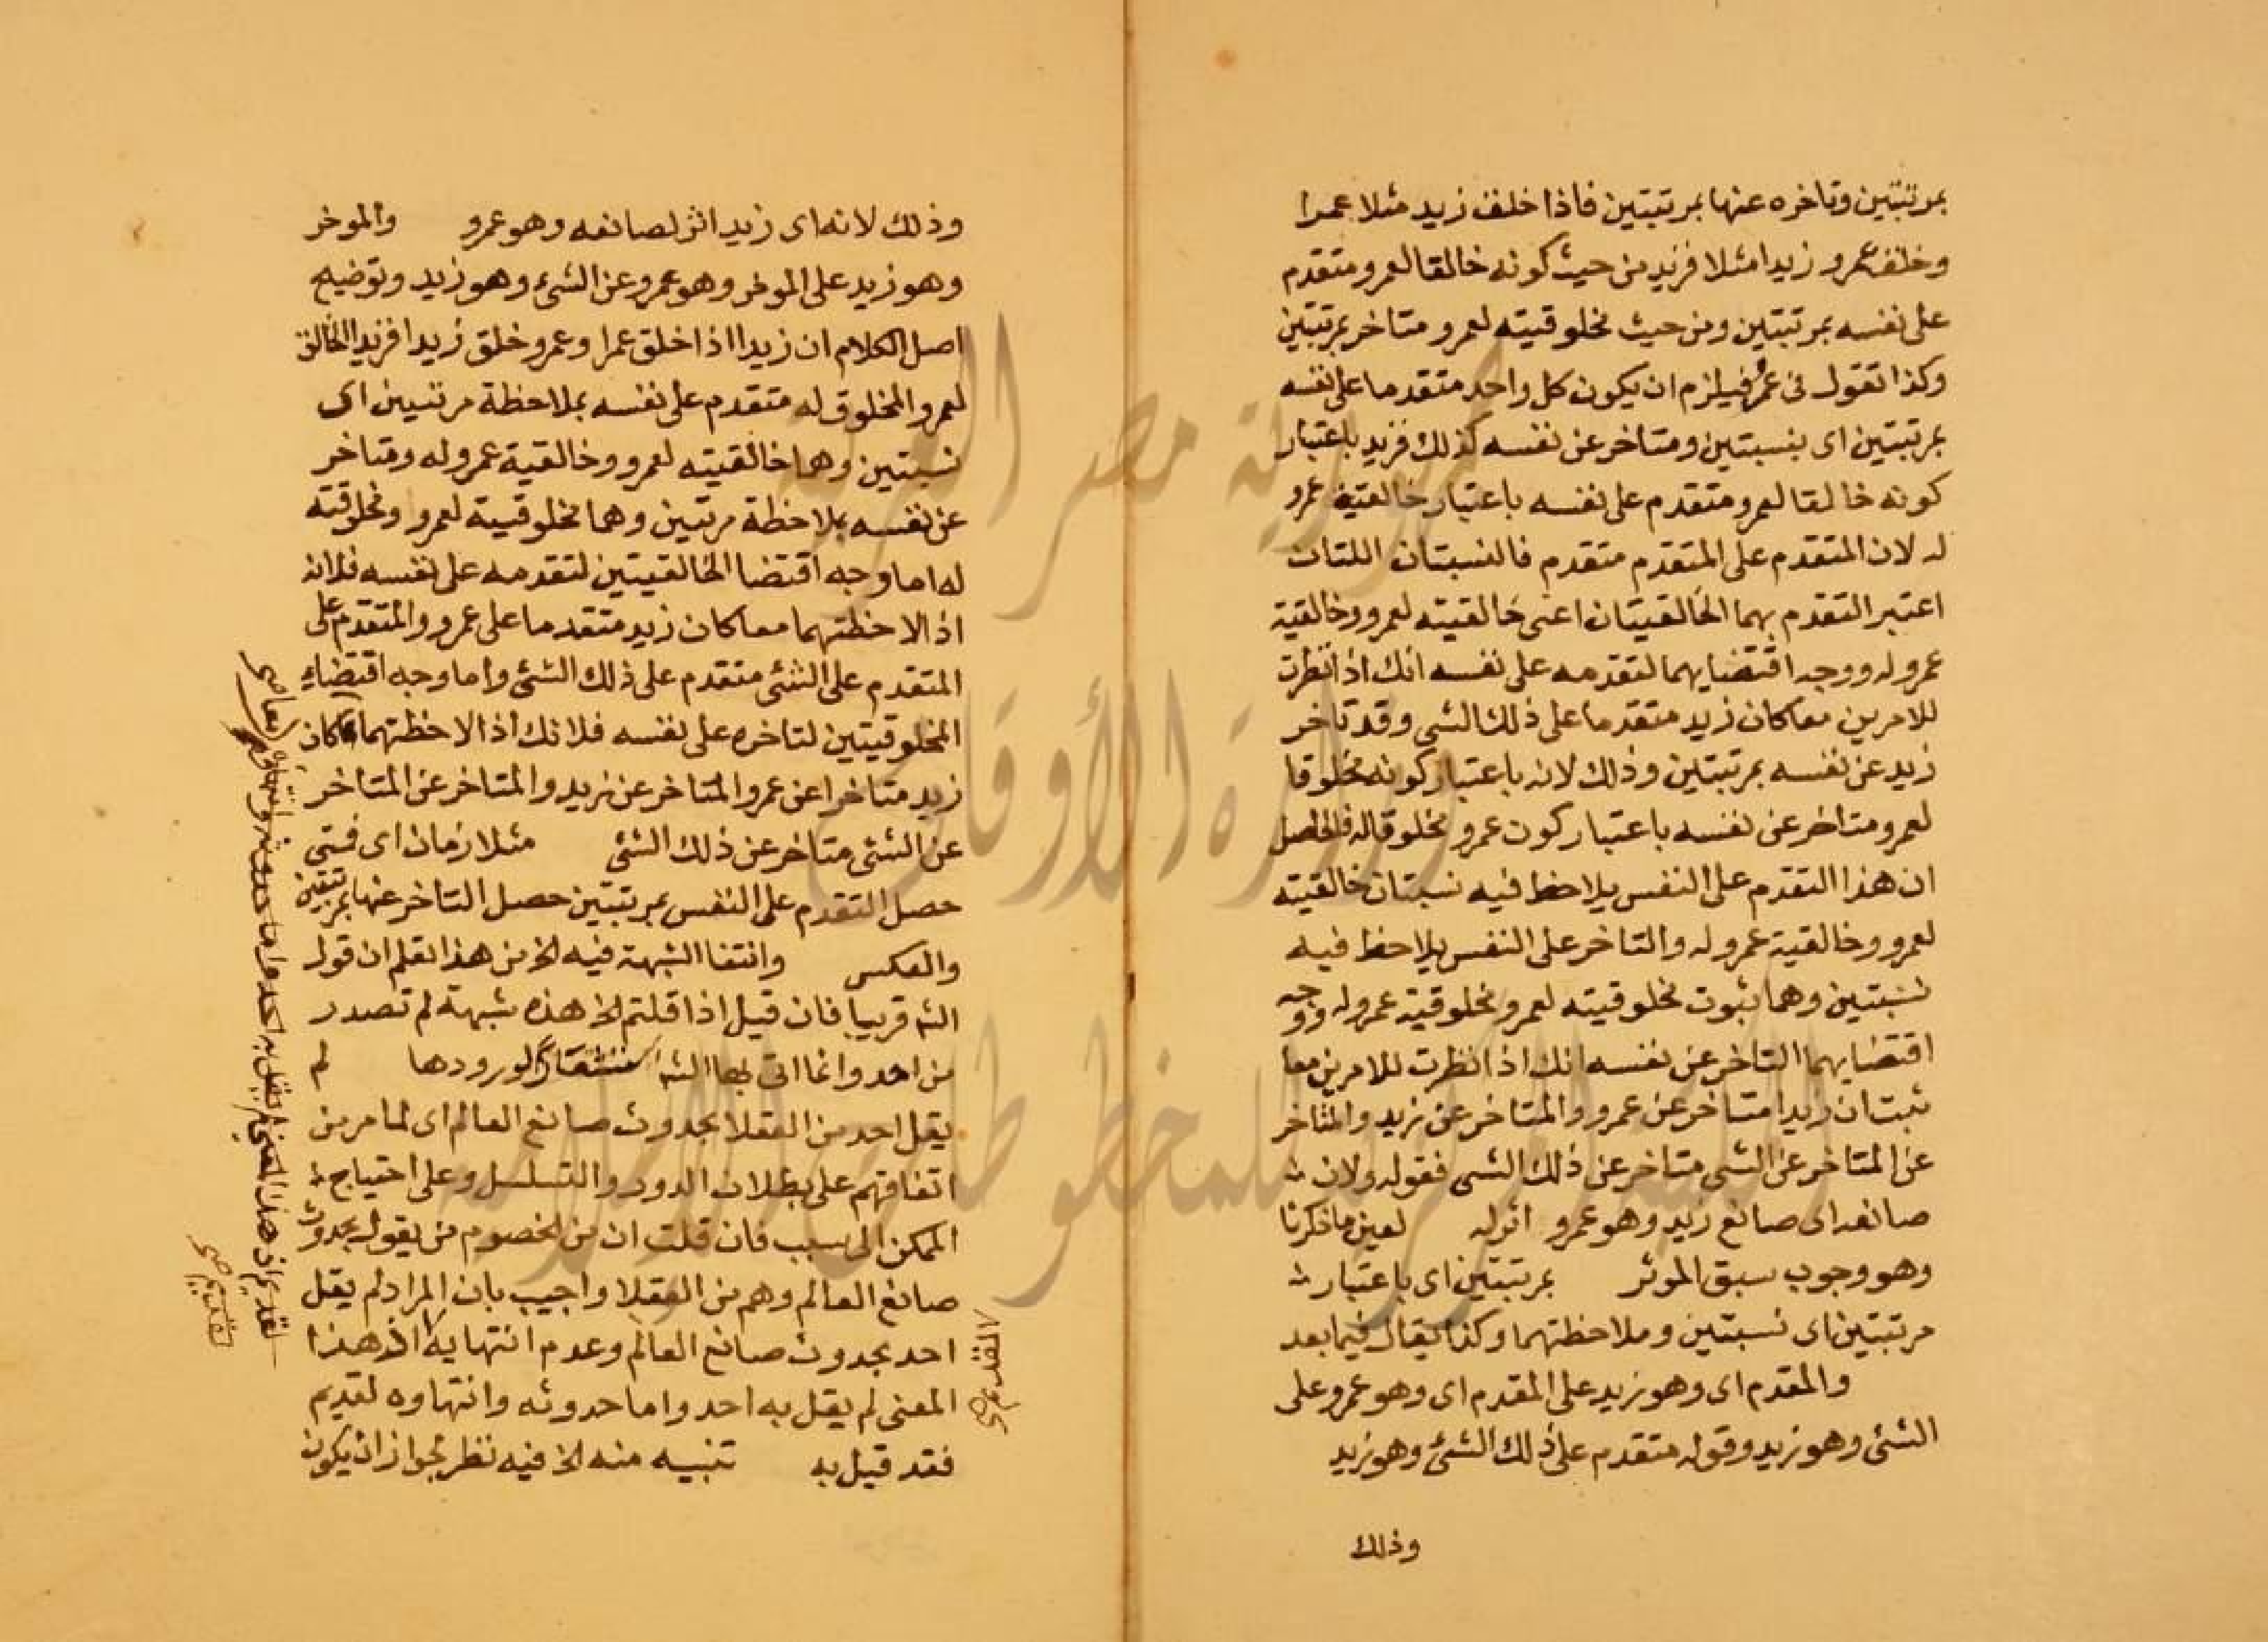 بمرتبتين وتاخره عنها بمرتبتين فاذا خلف زيد مثلا عمرا
وخلف عمرو زيدا مثلا فزيد من حيث كونه خالقا لعمرو متقدم
على نفسه بمرتبتين ومن حيث مخلوقيته لعمرو متاخر بمرتبتين
وكذا تقول فى عمرو فيلزم ان يكون كل واحد متقدما على نفسه
بمرتبتين اى بنسبتين ومتاخر عن نفسه كذلك فزيد باعتبار
كونه خالقا لعمرو متقدم على نفسه باعتبار خالقية عمرو
له لان المتقدم على المتقدم متقدم فالنسبتان اللتان
اعتبر التقدم بهما الخالقيتان اعنى خالقيته لعمرو وخالقية
عمرو له ووجه اقتضايهما لتقدمه على نفسه انك اذا نظرت
للامرين معا كان زيد متقدما على ذلك الشى وقد تاخر
زيد عن نفسه بمرتبتين وذلك لانه باعتبار كونه مخلوقا
لعمرو متاخر عن نفسه باعتبار كون عمرو مخلوقا له فالحاصل
ان هذا التقدم على النفس يلاحظ فيه نسبتان خالقيته
لعمرو وخالقية عمرو له والتاخر على النفس يلاحظ فيه
نسبتين وهما ثبوت مخلوقيته لعمرو ومخلوقية عمرو له ووجه
اقتضايهما التاخر عن نفسه انك اذا نظرت للامرين معا
ثبت ان زيدا متاخر عن عمرو والمتاخر عن زيد والمتاخر
عن المتاخر عن الشى متاخر عن ذلك الشى فقوله ولان
صانعه اى صانع زيد وهو عمرو اثر له لعين ما ذكرنا
وهو وجوب سبق الموثر بمرتبتين اى باعتبار
مرتبتين اى نسبتين وملاحظتهما وكذا يقال فيما بعد
والمقدم اى وهو زيد على المقدم اى وهو عمرو على
الشئ وهو زيد وقوله متقدم على ذلك الشئ وهو زيد
وذلك
وذلك لانه اى زيد اثر لصانعه وهو عمرو والموخر
وهو زيد على الموخر وهو عمرو عن الشئ وهو زيد وتوضيح
اصل الكلام ان زيدا اذا خلق عمرا وعمرو خلق زيدا فزيد الخالق
لعمرو المخلوق له متقدم على نفسه بملاحظة مرتبتين اى
نسبتين وهما خالقيته لعمرو وخالقية عمرو له ومتاخر
عن نفسه بملاحظة مرتبتين وهما مخلوقيته لعمرو ومخلوقيته
له اما وجه اقتضا الخالقيتين لتقدمه على نفسه فلانه
اذا لاحظتهما معا كان زيد متقدما على عمرو والمتقدم على
المتقدم على الشئ متقدم على ذلك الشئ واما وجه اقتضاء
المخلوقيتين لتاخره على نفسه فلانك اذا لاحظتهما كان
زيد متاخرا عن عمرو المتاخر عن زيد والمتاخر عن المتاخر
عن الشئ متاخر عن ذلك الشئ مثلا زمان اى فمتى
حصل التقدم على النفس بمرتبتين حصل التاخر عنها بمرتبتين
والعكس وانتفا الشبهة فيه الخ من هذا تعلم ان قول
الشه قريبا فان قيل اذا قلتم الخ هذه شبهة لم تصدر
من احد وانما اتى بها الشه لورودها لم
يقل احد من العقلا بحدوث صانع العالم اى لما مر من
اتفاقهم على بطلان الدور والتسلسل وعلى احتياج
الممكن الى سبب فان قلت ان من الخصوم من يقول بحدوث
صانع العالم وهم من العقلا واجيب بان المراد لم يقل
احد بحدوث صانع العالم وعدم انتهايه اذ هذا
المعنى لم يقل به احد واما حدوثه وانتهاوه لقديم
فقد قيل به تنبيه منه الخ فيه نظر لجواز ان يكون
معا صح
لقديم اذ هذا المعنى لم يقل به احد واما حدوثه وانتهاوه
لقديم صح